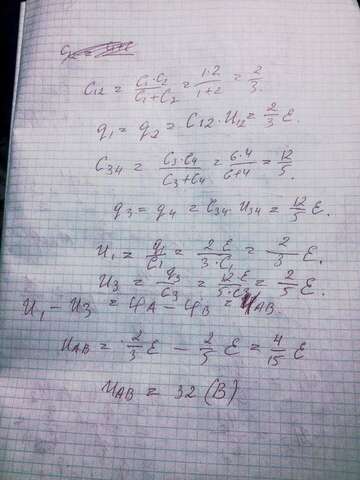 C12 = C1·C2 / C1+C2 = 1·2 / 1+2 = 2/3.
q1 = q2 = C12·U12 = 2/3 ε.
C34 = C3·C4 / C3+C4 = 6·4 / 6+4 = 12/5.
q3 = q4 = C34·U34 = 12/5 ε.
U1 = q1/C1 = 2 ε / 3·C1 = 2/3 ε.
U3 = q3/C3 = 12 ε / 5·C3 = 2/5 ε.
U1 - U3 = φA - φB = UAB.
UAB = 2/3 ε - 2/5 ε = 4/15 ε
UAB = 32 (B)